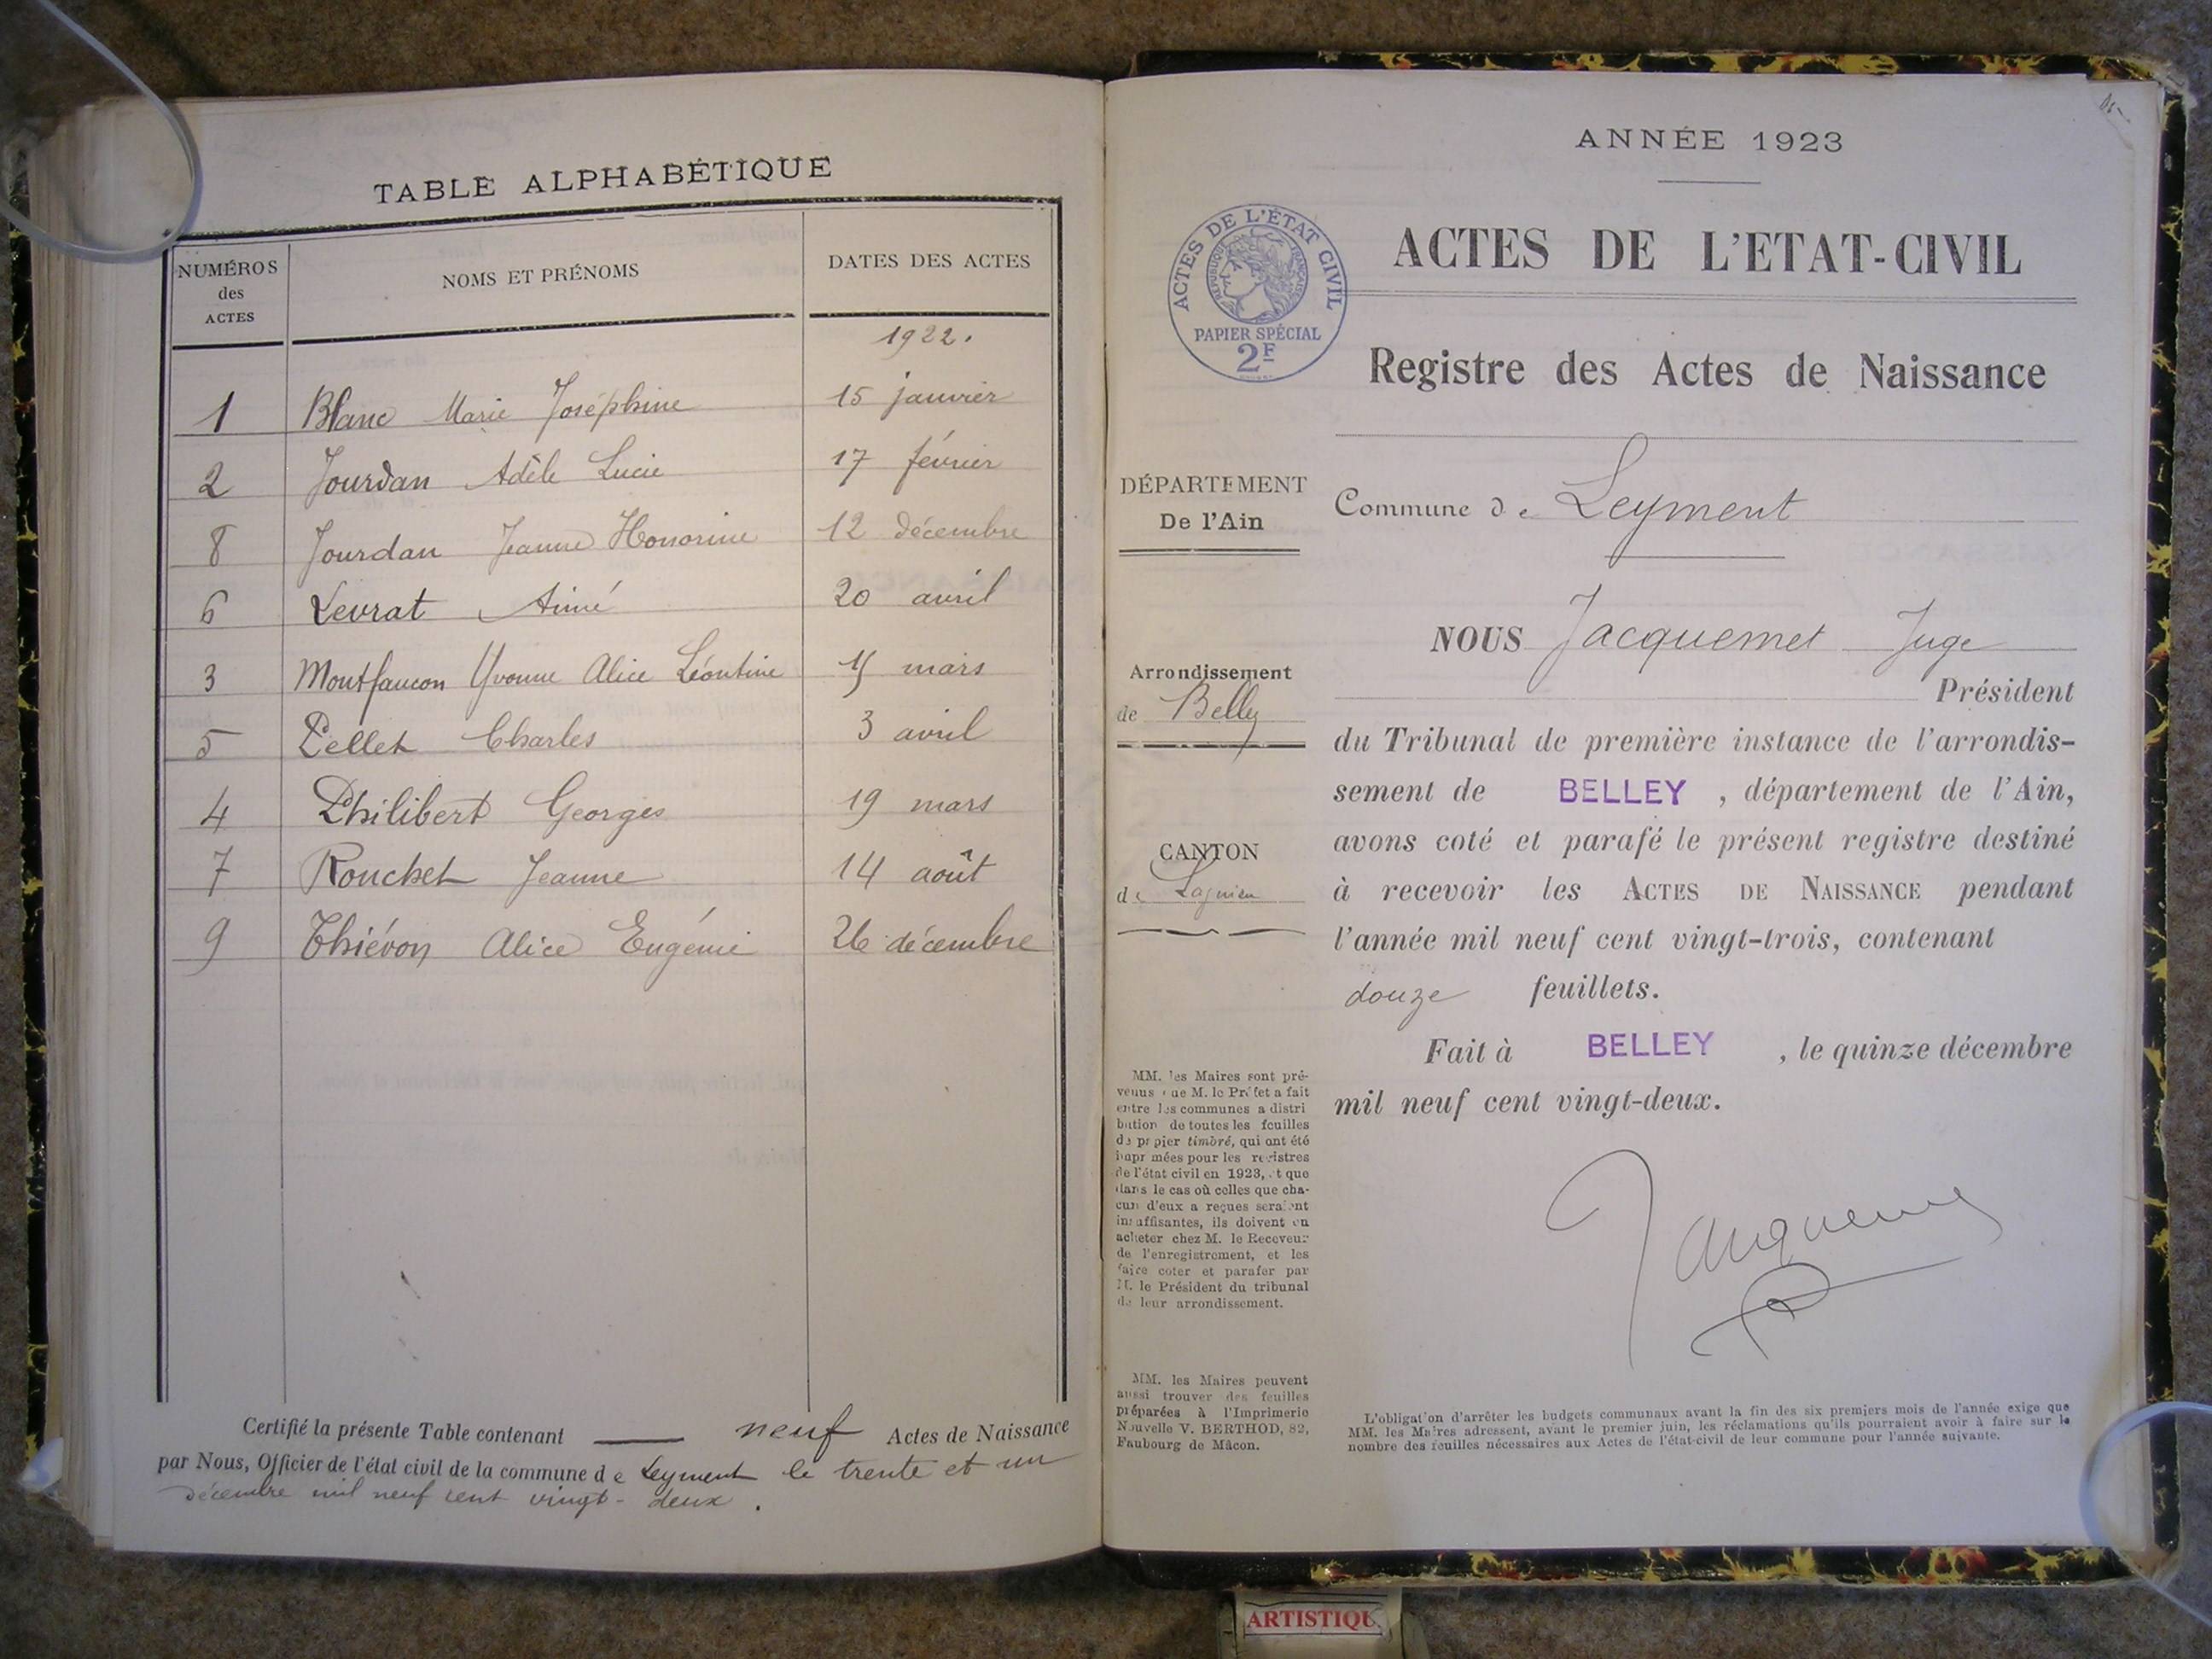 TABLE ALPHABÉTIQUE
NUMÉROS des ACTES NOMS ET PRÉNOMS DATES DES ACTES
1922.
1 Blanc Marie Joséphine 15 janvier
2 Jourdan Adèle Lucie 17 février
8 Jourdan Jeanne Honorine 12 décembre
6 Levrat Aimé 20 avril
3 Montfaucon Yvonne Alice Léontine mars
5 Pellet Charles 3 avril
4 Philibert Georges 19 mars
7 Rouchet Jeanne 14 août
9 Thiévon Alice Eugénie 26 décembre
Certifié la présente Table contenant neuf Actes de Naissance
par Nous, Officier de l'état civil de la commune de Leyment le trente et un
décembre mil neuf cent vingt-deux.
ANNÉE 1923
ACTES DE L'ÉTAT CIVIL
RÉPUBLIQUE FRANÇAISE
PAPIER SPÉCIAL
2F
ACTES DE L'ETAT-CIVIL
Registre des Actes de Naissance
DÉPARTEMENT
De l'Ain
Commune de Leyment
Arrondissement
de Belley
CANTON
de Lagnieu
NOUS Jacquemet Juge
Président
du Tribunal de première instance de l'arrondis-
sement de BELLEY, département de l'Ain,
avons coté et parafé le présent registre destiné
à recevoir les ACTES DE NAISSANCE pendant
l'année mil neuf cent vingt-trois, contenant
douze feuillets.
Fait à BELLEY, le quinze décembre
mil neuf cent vingt-deux.
MM. les Maires sont pré-
venus que M. le Préfet a fait
entre les communes a distri
bution de toutes les feuilles
de papier timbré, qui ont été
impr mées pour les registres
de l'état civil en 1923, et que
dans le cas où celles que cha-
cun d'eux a reçues seraient
insuffisantes, ils doivent en
acheter chez M. le Receveur
de l'enregistrement, et les
faire coter et parafer par
M. le Président du tribunal
de leur arrondissement.
MM. les Maires peuvent
aussi trouver des feuilles
préparées à l'Imprimerie
Nouvelle V. BERTHOD, 82,
Faubourg de Mâcon.
Jacquemet
L'obligation d'arrêter les budgets communaux avant la fin des six premiers mois de l'année exige que
MM. les Maires adressent, avant le premier juin, les réclamations qu'ils pourraient avoir à faire sur le
nombre des feuilles nécessaires aux Actes de l'état-civil de leur commune pour l'année suivante.
ARTISTIQU